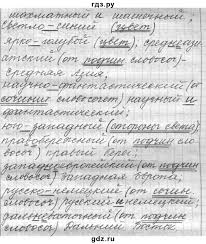 гдз.ру
шахматного и шашечный;
светло-синий (цвет)
ярко-голубой (цвет), среднеази-
атский (от подчин словосоч)-
средняя Азия,
научно-фантастический (от
сочинит словосочет) научный и
фантастический;
юго-западный (сторона света)
правобережный (от подчин сло-
восоч) правый берег;
западноевропейский (от подчин
словосоч) Западная Европа;
русско-немецкий (от сочин
словосоч) русский и немецкий;
дальневосточный (от подчин
словосоч) Дальний Восток
gdz.ru